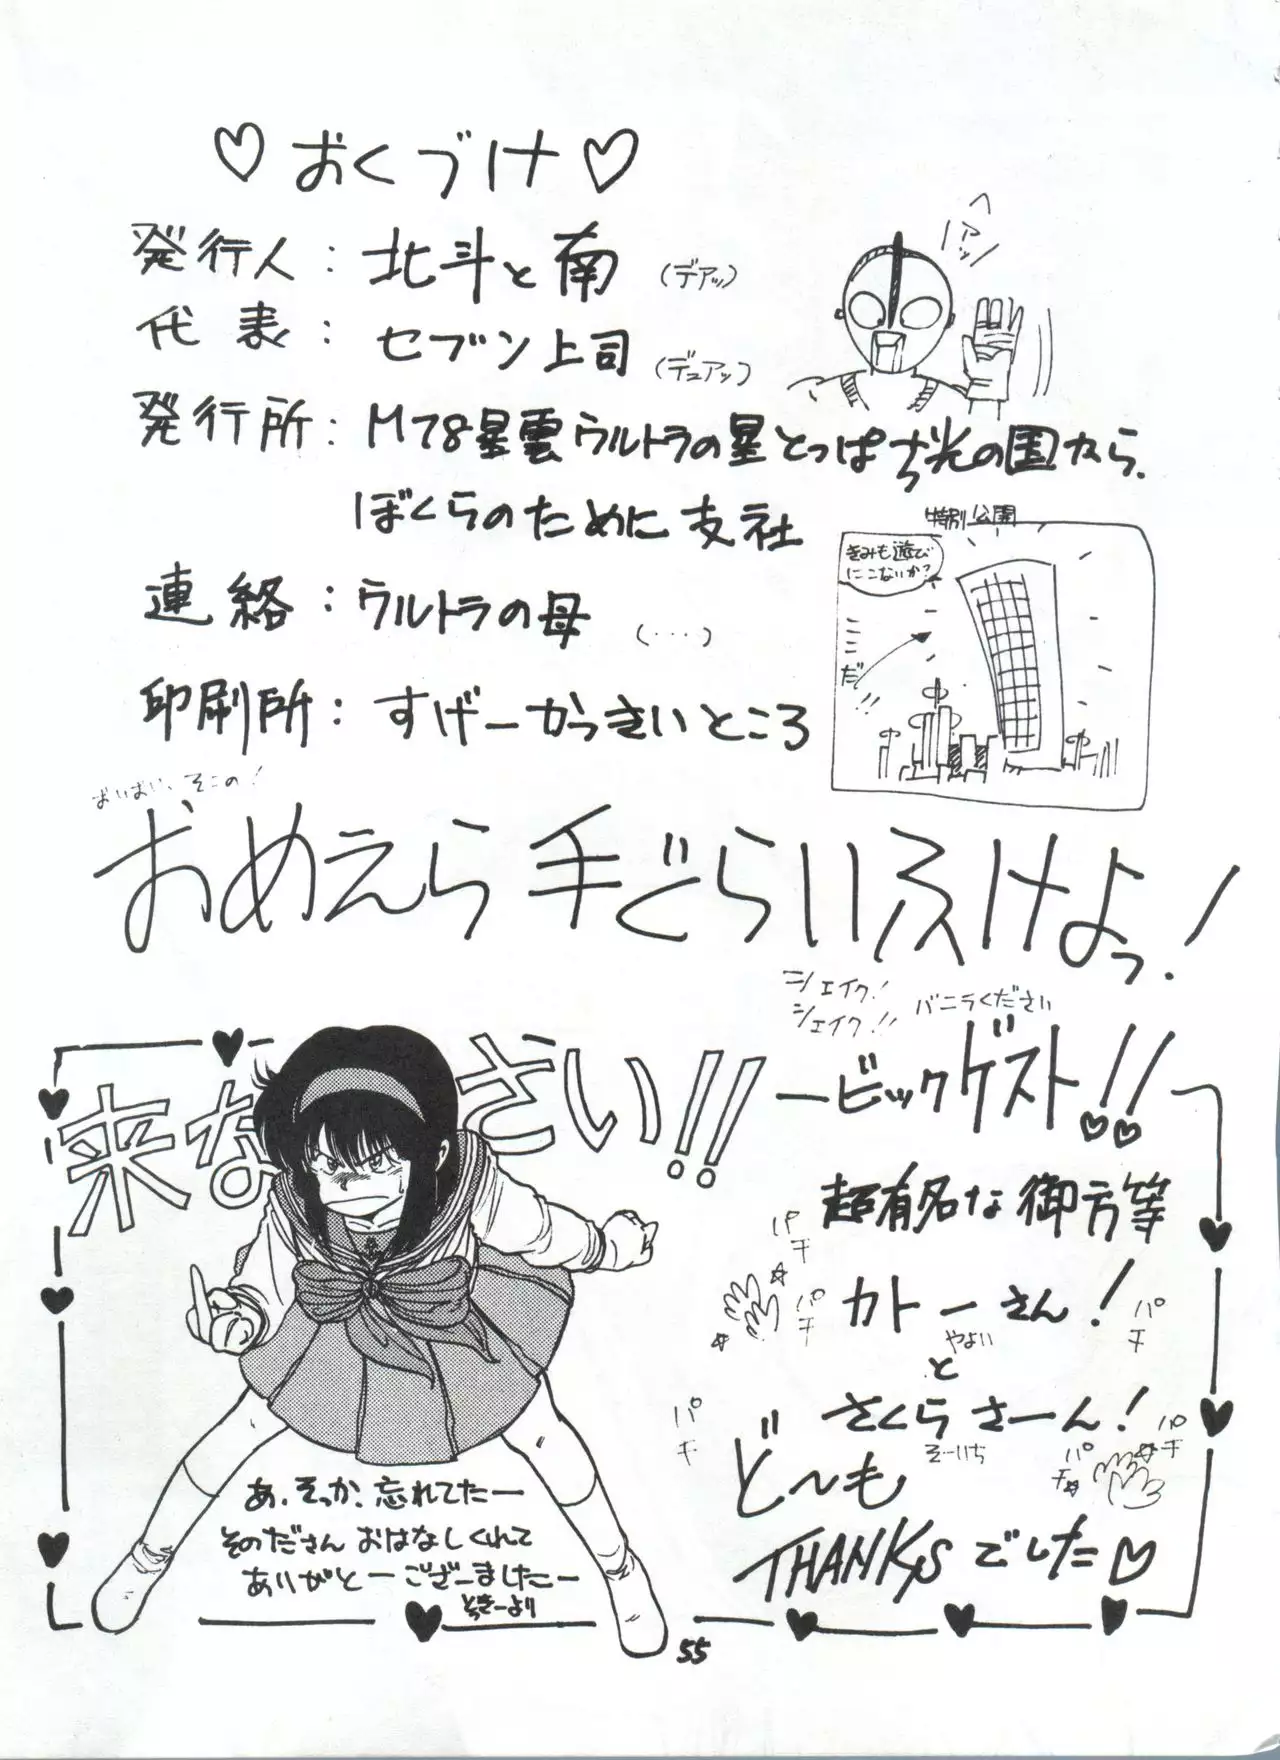 ♡おくづけ♡
ヘアッ
発行人：北斗と南（デアッ）
代表：セブン上司（デュアッ）
発行所：M78星雲ウルトラの星とっぱち光の国から
ぼくらのために支社
連絡：ウルトラの母（‥‥）
印刷所：すげーかっさいところ
特別公園
きみも遊び
にこないか？
だ!!
おいおい、そこの！
おめえら手ぐらいふけよっ！
シェイク！
シェイク!!
バニラください
来なさい!!
ビックゲスト!!
超有名な御方等
パチ
パチ
カトーさん！
やよい
パチ
と
さくらさーん！
そーいち
パチ
パチ
パチ
ど〜も
THANKSでした♡
あ、そっか、忘れてたー
そのださんおはなしくれて
ありがとーございましたー
とっきーより
55